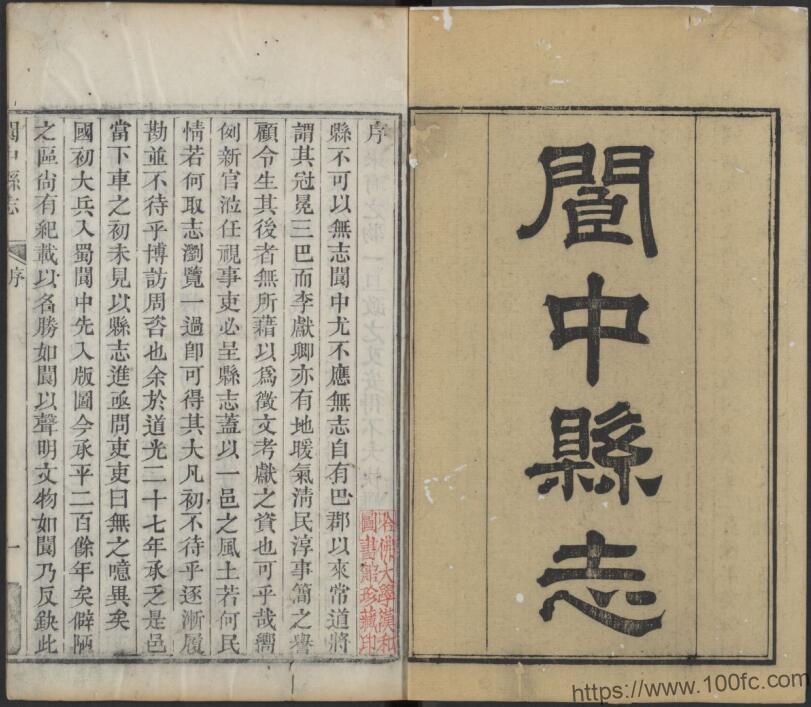 閬中縣志
序
縣不可以無志閬中尤不應無志自有巴郡以來常道將
謂其冠冕三巴而李獻卿亦有地暖氣清民淳事簡之譽
顧令生其後者無所藉以為徵文考獻之資也可乎哉嚮
例新官涖任視事吏必呈縣志蓋以一邑之風土若何民
情若何取志瀏覽一過卽可得其大凡初不待乎逐漸履
勘並不待乎博訪周咨也余於道光二十七年承乏是邑
當下車之初未見以縣志進亟問吏吏曰無之噫異矣
國初大兵入蜀閬中先入版圖今承平二百餘年矣僻陋
之區尙有紀載以名勝如閬以聲明文物如閬乃反缺此
閬中縣志
序
一
哈佛大學漢和
圖書館珍藏印
https://www.100fc.com